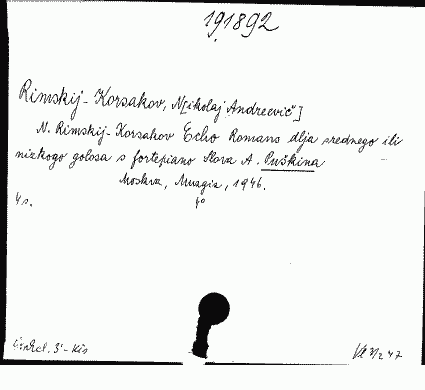 191892
Rimskij-Korsakov, N[ikolaj Andreevič]
N. Rimskij-Korsakov Echo Romans dlja srednego ili
nizkogo golosa s fortepiano Slova A. Puškina
Moskva, Muzgiz, 1946.
4 s. 4°